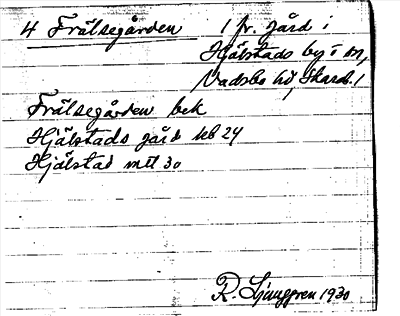 4 Frälsegården 1 fr. gård i
Hjälstads by i sn,
Vadsbo hd, Skarab. l
Frälsegården bek
Hjälstads gård Jeb 24
Hjälstad mtl 30
R. Ljunggren 1930